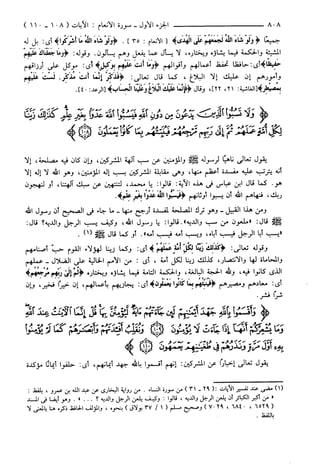 ٨٠٨ الجزء الأول - سورة الأنعام : الآيات (١٠٨ - ١١٠)
جميعًا ﴿وَلَوْ شَاءَ اللَّهُ لَجَمَعَهُمْ عَلَى الْهُدَى﴾ [الأنعام : ٣٥] . ﴿وَلَوْ شَاءَ اللَّهُ مَا أَشْرَكُوا﴾ أي: بل له
المشيئة والحكمة فيما يشاؤه ويختاره، لا يسأل عما يفعل وهم يسألون. وقوله: ﴿وَمَا جَعَلْنَاكَ عَلَيْهِمْ
حَفِيظًا﴾ أي: حافظا تحفظ أعمالهم وأقوالهم ﴿وَمَا أَنْتَ عَلَيْهِمْ بِوَكِيلٍ﴾ أي: موكل على أرزاقهم
وأمورهم إن عليك إلا البلاغ ، كما قال تعالى: ﴿فَذَكِّرْ إِنَّمَا أَنْتَ مُذَكِّرٌ. لَسْتَ عَلَيْهِمْ
بِمُصَيْطِرٍ﴾ [الغاشية: ٢١، ٢٢]، وقال ﴿فَإِنَّمَا عَلَيْكَ الْبَلَاغُ وَعَلَيْنَا الْحِسَابُ﴾ [الرعد: ٤٠].
وَلَا تَسُبُّوا الَّذِينَ يَدْعُونَ مِنْ دُونِ اللَّهِ فَيَسُبُّوا اللَّهَ عَدْوًا بِغَيْرِ عِلْمٍ كَذَلِكَ زَيَّنَّا
لِكُلِّ أُمَّةٍ عَمَلَهُمْ ثُمَّ إِلَى رَبِّهِمْ مَرْجِعُهُمْ فَيُنَبِّئُهُمْ بِمَا كَانُوا يَعْمَلُونَ
يقول تعالى ناهيًا لرسوله والمؤمنين عن سب آلهة المشركين، وإن كان فيه مصلحة، إلا
أنه يترتب عليه مفسدة أعظم منها، وهي مقابلة المشركين بسب إله المؤمنين، وهو الله لا إله إلا
هو. كما قال ابن عباس في هذه الآية: قالوا: يا محمد، لتنتهين عن سبك آلهتنا، أو لنهجون
ربك، فنهاهم الله أن يسبوا أوثانهم ﴿فَيَسُبُّوا اللَّهَ عَدْوًا بِغَيْرِ عِلْمٍ﴾.
ومن هذا القبيل - وهو ترك المصلحة لمفسدة أرجح منها - ما جاء في الصحيح أن رسول الله
ﷺ قال: «ملعون من سب والديه». قالوا: يا رسول الله، وكيف يسب الرجل والديه؟ قال:
«يسب أبا الرجل فيسب أباه، ويسب أمه فيسب أمه». أو كما قال ﷺ (١) .
وقوله تعالى: ﴿كَذَلِكَ زَيَّنَّا لِكُلِّ أُمَّةٍ عَمَلَهُمْ﴾ أي: وكما زينا لهؤلاء القوم حبّ أصنامهم
والمحاماة لها والانتصار، كذلك زينا لكل أمة ، أي : من الأمم الخالية على الضلال - عملهم
الذي كانوا فيه، ولله الحجة البالغة، والحكمة التامة فيما يشاؤه ويختاره ﴿ثُمَّ إِلَى رَبِّهِمْ مَرْجِعُهُمْ﴾
أي: معادهم ومصيرهم ﴿فَيُنَبِّئُهُمْ بِمَا كَانُوا يَعْمَلُونَ﴾ أي: يجازيهم بأعمالهم، إن خيرًا فخير، وإن
شرًا فشر.
وَأَقْسَمُوا بِاللَّهِ جَهْدَ أَيْمَانِهِمْ لَئِنْ جَاءَتْهُمْ آيَةٌ لَيُؤْمِنُنَّ بِهَا قُلْ إِنَّمَا الْآيَاتُ عِنْدَ اللَّهِ
وَمَا يُشْعِرُكُمْ أَنَّهَا إِذَا جَاءَتْ لَا يُؤْمِنُونَ وَنُقَلِّبُ أَفْئِدَتَهُمْ وَأَبْصَارَهُمْ كَمَا لَمْ يُؤْمِنُوا
بِهِ أَوَّلَ مَرَّةٍ وَنَذَرُهُمْ فِي طُغْيَانِهِمْ يَعْمَهُونَ
يقول تعالى إخبارًا عن المشركين: إنهم أقسموا بالله جهد أيمانهم، أي: حلفوا أيمانًا مؤكدة
(١) مضى عند تفسير الآيات : (٢٩ - ٣١) من سورة النساء . من رواية البخاري عن عبد الله بن عمرو ، بلفظ :
« من أكبر الكبائر أن يلعن الرجل والديه ، قالوا : وكيف يلعن الرجل والديه ؟ ... » . وهو أيضا في المسند
(٦٥٢٩ ، ٦٨٤٠ ، ٧٠٢٩) وصحيح مسلم (١ / ٣٧ بولاق) بنحوه ، والمؤلف الحافظ ذكره هنا بالمعنى لا
باللفظ .